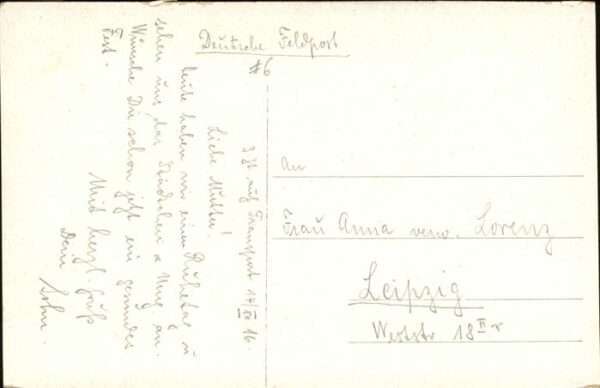 Deutsche Feldpost
#6
z. Zt. auf Transport 14/IV 16.
Liebe Mutter!
heute haben wir einen Ruhetag u.
sehen uns das Städtchen & Umg. an.
Wünsche Dir schon jetzt ein gesundes
Fest.
Mit herzl. Gruß
Dein
Sohn.
An
Frau Anna verw. Lorenz
Leipzig
Weststr 18 II r